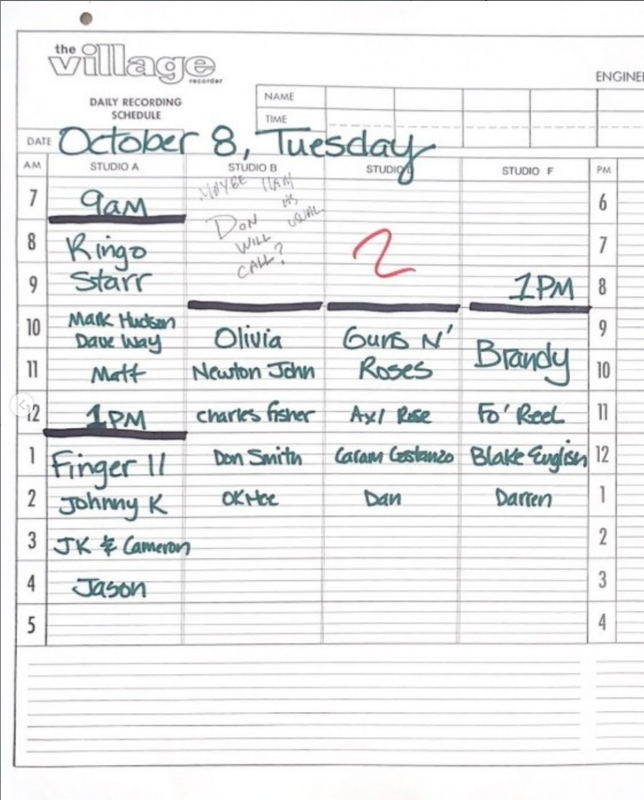 the
village
recorder
ENGINEE
DAILY RECORDING
SCHEDULE
NAME
TIME
DATE October 8, Tuesday
AM STUDIO A STUDIO B STUDIO STUDIO F PM
7 9am MAYBE 11AM AS USUAL 6
8 Ringo DON WILL CALL? 2 7
9 Starr 1PM 8
10 Mark Hudson Olivia Guns N' Brandy 9
Dave Way
11 Matt Newton John Roses 10
12 1PM Charles fisher Axl Rose Fo' Reel 11
1 Finger 11 Don Smith Caram Costanzo Blake English 12
2 Johnny K OK Hee Dan Darren 1
3 JK & Cameron 2
4 Jason 3
5 4